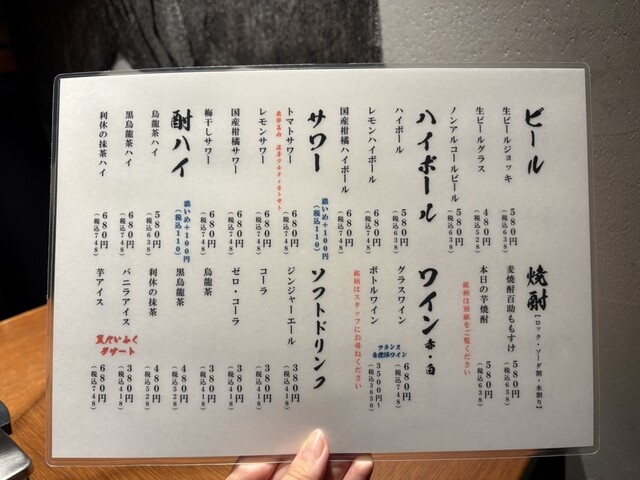 ビール
生ビールジョッキ 580円
(税込638)
生ビールグラス 480円
(税込528)
ノンアルコールビール 580円
(税込638)
ハイボール
ハイボール 580円
(税込638)
レモンハイボール 680円
(税込748)
国産柑橘ハイボール 680円
(税込748)
サワー 濃いめ+100円
(税込110)
トマトサワー 680円
(税込748)
飛騨高山 濃厚フルティカトマト
レモンサワー 680円
(税込748)
国産柑橘サワー 680円
(税込748)
梅干しサワー 680円
(税込748)
酎ハイ 濃いめ+100円
(税込110)
烏龍茶ハイ 580円
(税込638)
黒烏龍茶ハイ 680円
(税込748)
利休の抹茶ハイ 680円
(税込748)
焼酎【ロック・ソーダ割・水割り】
麦焼酎百助ももすけ 580円
(税込638)
本日の芋焼酎 580円
(税込638)
銘柄は別紙をご覧ください
ワイン 赤・白
グラスワイン 680円
(税込748)
フランス
自然派ワイン
ボトルワイン 3500円~
(税込3850)
銘柄はスタッフにお尋ねください
ソフトドリンク
ジンジャーエール 380円
(税込418)
コーラ 380円
(税込418)
ゼロ・コーラ 380円
(税込418)
烏龍茶 380円
(税込418)
黒烏龍茶 480円
(税込528)
利休の抹茶 480円
(税込528)
豆だいふく
デザート
バニラアイス 380円
(税込418)
芋アイス 680円
(税込748)